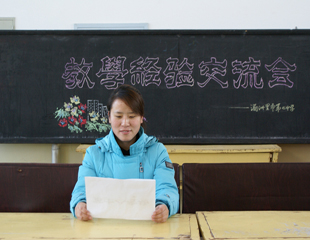 教學经验交流会
——满洲里市第四中学